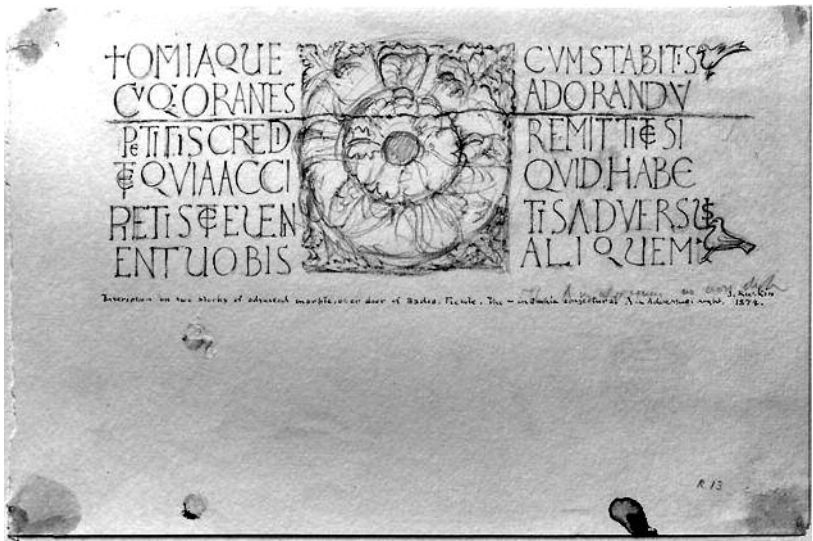 +OMIAQUE
CVQ: ORANES
PETITIS CREDI
TE QVIA ACCI
PIETIS ET EUEN
ENT UOBIS
CVM STABITIS
ADORANDV
REMITTITE SI
QVID HABE
TIS ADVERSUS
ALIQUEM
Inscription on two blocks of adjacent marble, over door of Badia, Fiesole. The – in Omnia conjectural. A in Adversus right. J. Ruskin
1874.
R 13